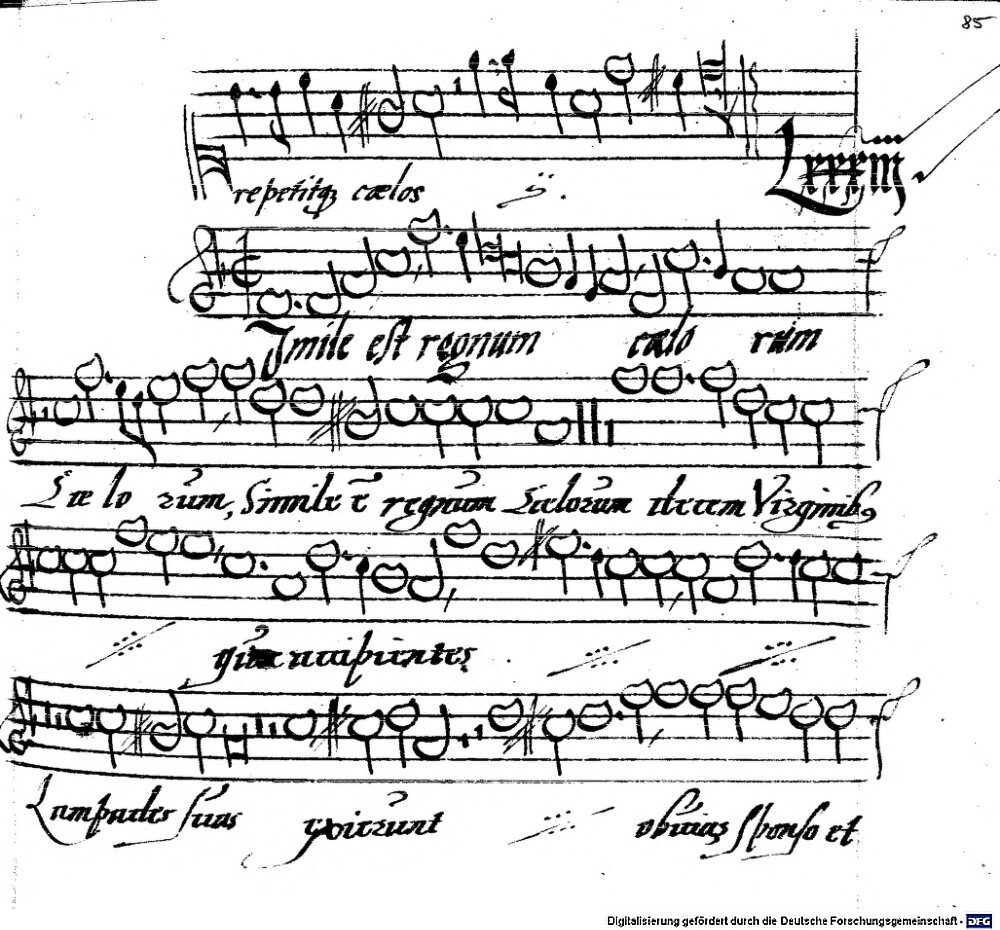 85
repetitq; cælos ij.
Lxxxiij
Simile est regnum cælo rum
Cæ lo rum, Simile ē regnum Cælorum decem Virginibus
quæ accipientes
Lampades suas exierunt obuiã sponso et
Digitalisierung gefördert durch die Deutsche Forschungsgemeinschaft - DFG